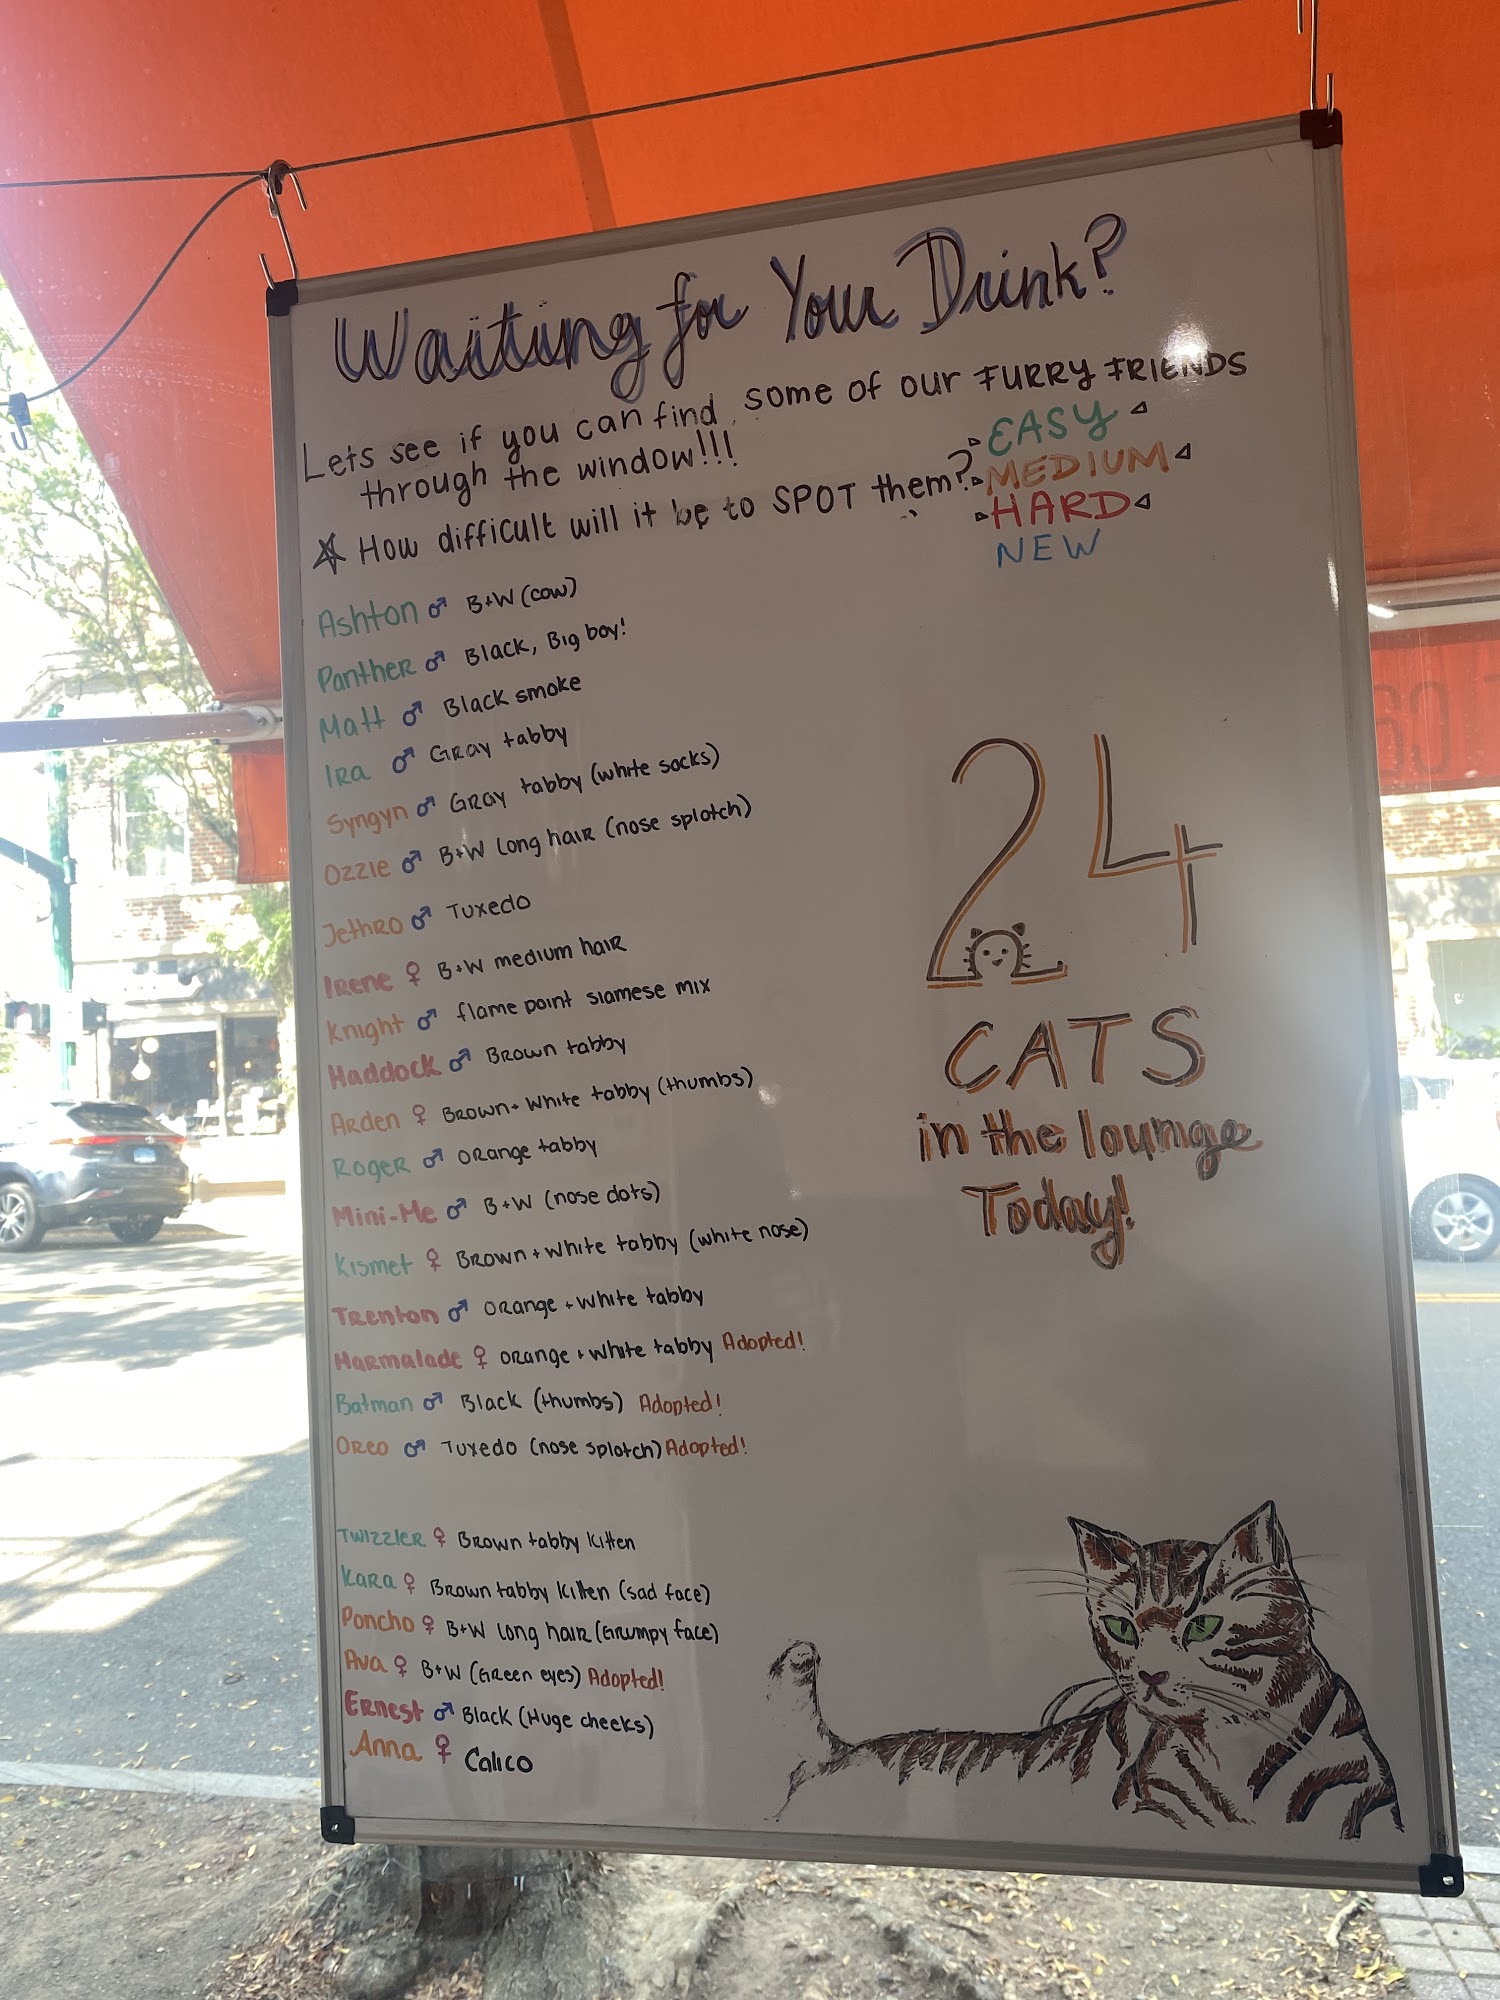 Waiting for Your Drink?
Lets see if you can find some of our FURRY FRIENDS
through the window!!!
☆ How difficult will it be to SPOT them?
EASY
MEDIUM
HARD
NEW
Ashton ♂ B+W (cow)
Panther ♂ Black, Big boy!
Matt ♂ Black smoke
Ira ♂ Gray tabby
Syngyn ♂ Gray tabby (white socks)
Ozzie ♂ B+W Long hair (nose splotch)
Jethro ♂ Tuxedo
Irene ♀ B+W medium hair
Knight ♂ flame point siamese mix
Haddock ♂ Brown tabby
Arden ♀ Brown+ White tabby (thumbs)
Roger ♂ Orange tabby
Mini-Me ♂ B+W (nose dots)
Kismet ♀ Brown + White tabby (white nose)
Trenton ♂ Orange + White tabby
Marmalade ♀ Orange + White tabby Adopted!
Batman ♂ Black (thumbs) Adopted!
Oreo ♂ Tuxedo (nose splotch) Adopted!
Twizzler ♀ Brown tabby kitten
Kara ♀ Brown tabby kitten (sad face)
Poncho ♀ B+W Long hair (Grumpy face)
Ava ♀ B+W (Green eyes) Adopted!
Ernest ♂ Black (Huge cheeks)
Anna ♀ Calico
24
CATS
in the lounge
Today!